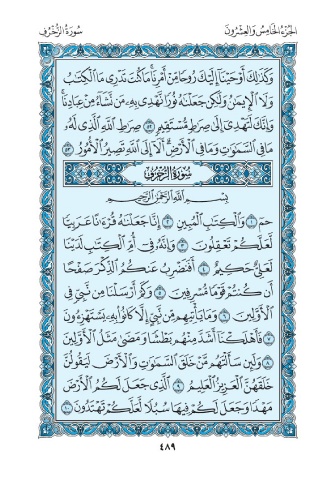 سُورَةُ الزُّخْرُفِ
الجُزْءُ الخَامِسُ وَالعِشْرُونَ
وَكَذَٰلِكَ أَوْحَيْنَا إِلَيْكَ رُوحًا مِّنْ أَمْرِنَا مَا كُنتَ تَدْرِي مَا الْكِتَٰبُ
وَلَا الْإِيمَٰنُ وَلَٰكِن جَعَلْنَٰهُ نُورًا نَّهْدِي بِهِ مَن نَّشَاءُ مِنْ عِبَادِنَا
وَإِنَّكَ لَتَهْدِي إِلَىٰ صِرَٰطٍ مُّسْتَقِيمٍ ٥٢ صِرَٰطِ اللَّهِ الَّذِي لَهُ
مَا فِي السَّمَٰوَٰتِ وَمَا فِي الْأَرْضِ أَلَا إِلَى اللَّهِ تَصِيرُ الْأُمُورُ ٥٣
سُورَةُ الزُّخْرُفِ
بِسْمِ اللَّهِ الرَّحْمَٰنِ الرَّحِيمِ
حم ١ وَالْكِتَٰبِ الْمُبِينِ ٢ إِنَّا جَعَلْنَٰهُ قُرْءَٰنًا عَرَبِيًّا
لَّعَلَّكُمْ تَعْقِلُونَ ٣ وَإِنَّهُ فِي أُمِّ الْكِتَٰبِ لَدَيْنَا
لَعَلِيٌّ حَكِيمٌ ٤ أَفَنَضْرِبُ عَنكُمُ الذِّكْرَ صَفْحًا
أَن كُنتُمْ قَوْمًا مُّسْرِفِينَ ٥ وَكَمْ أَرْسَلْنَا مِن نَّبِيٍّ فِي
الْأَوَّلِينَ ٦ وَمَا يَأْتِيهِم مِّن نَّبِيٍّ إِلَّا كَانُوا بِهِ يَسْتَهْزِءُونَ
٧ فَأَهْلَكْنَا أَشَدَّ مِنْهُم بَطْشًا وَمَضَىٰ مَثَلُ الْأَوَّلِينَ
٨ وَلَئِن سَأَلْتَهُم مَّنْ خَلَقَ السَّمَٰوَٰتِ وَالْأَرْضَ لَيَقُولُنَّ
خَلَقَهُنَّ الْعَزِيزُ الْعَلِيمُ ٩ الَّذِي جَعَلَ لَكُمُ الْأَرْضَ
مَهْدًا وَجَعَلَ لَكُمْ فِيهَا سُبُلًا لَّعَلَّكُمْ تَهْتَدُونَ ١٠
٤٨٩